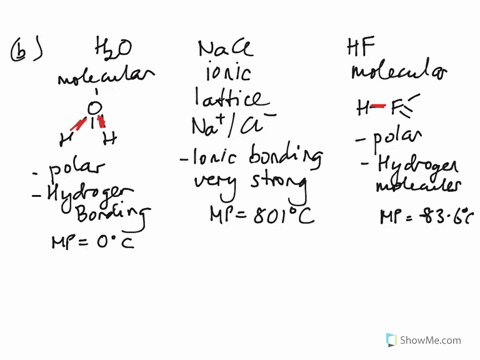 (b)
H₂O
molecular
O
H H
- polar
- Hydroger
Bonding
MP = 0°C
NaCl
ionic
lattice
Na⁺/Cl⁻
- Ionic bonding
very strong
MP = 801°C
HF
molecular
H-F
- polar
- Hydroger
molecules
MP = -83.6°C
ShowMe.com